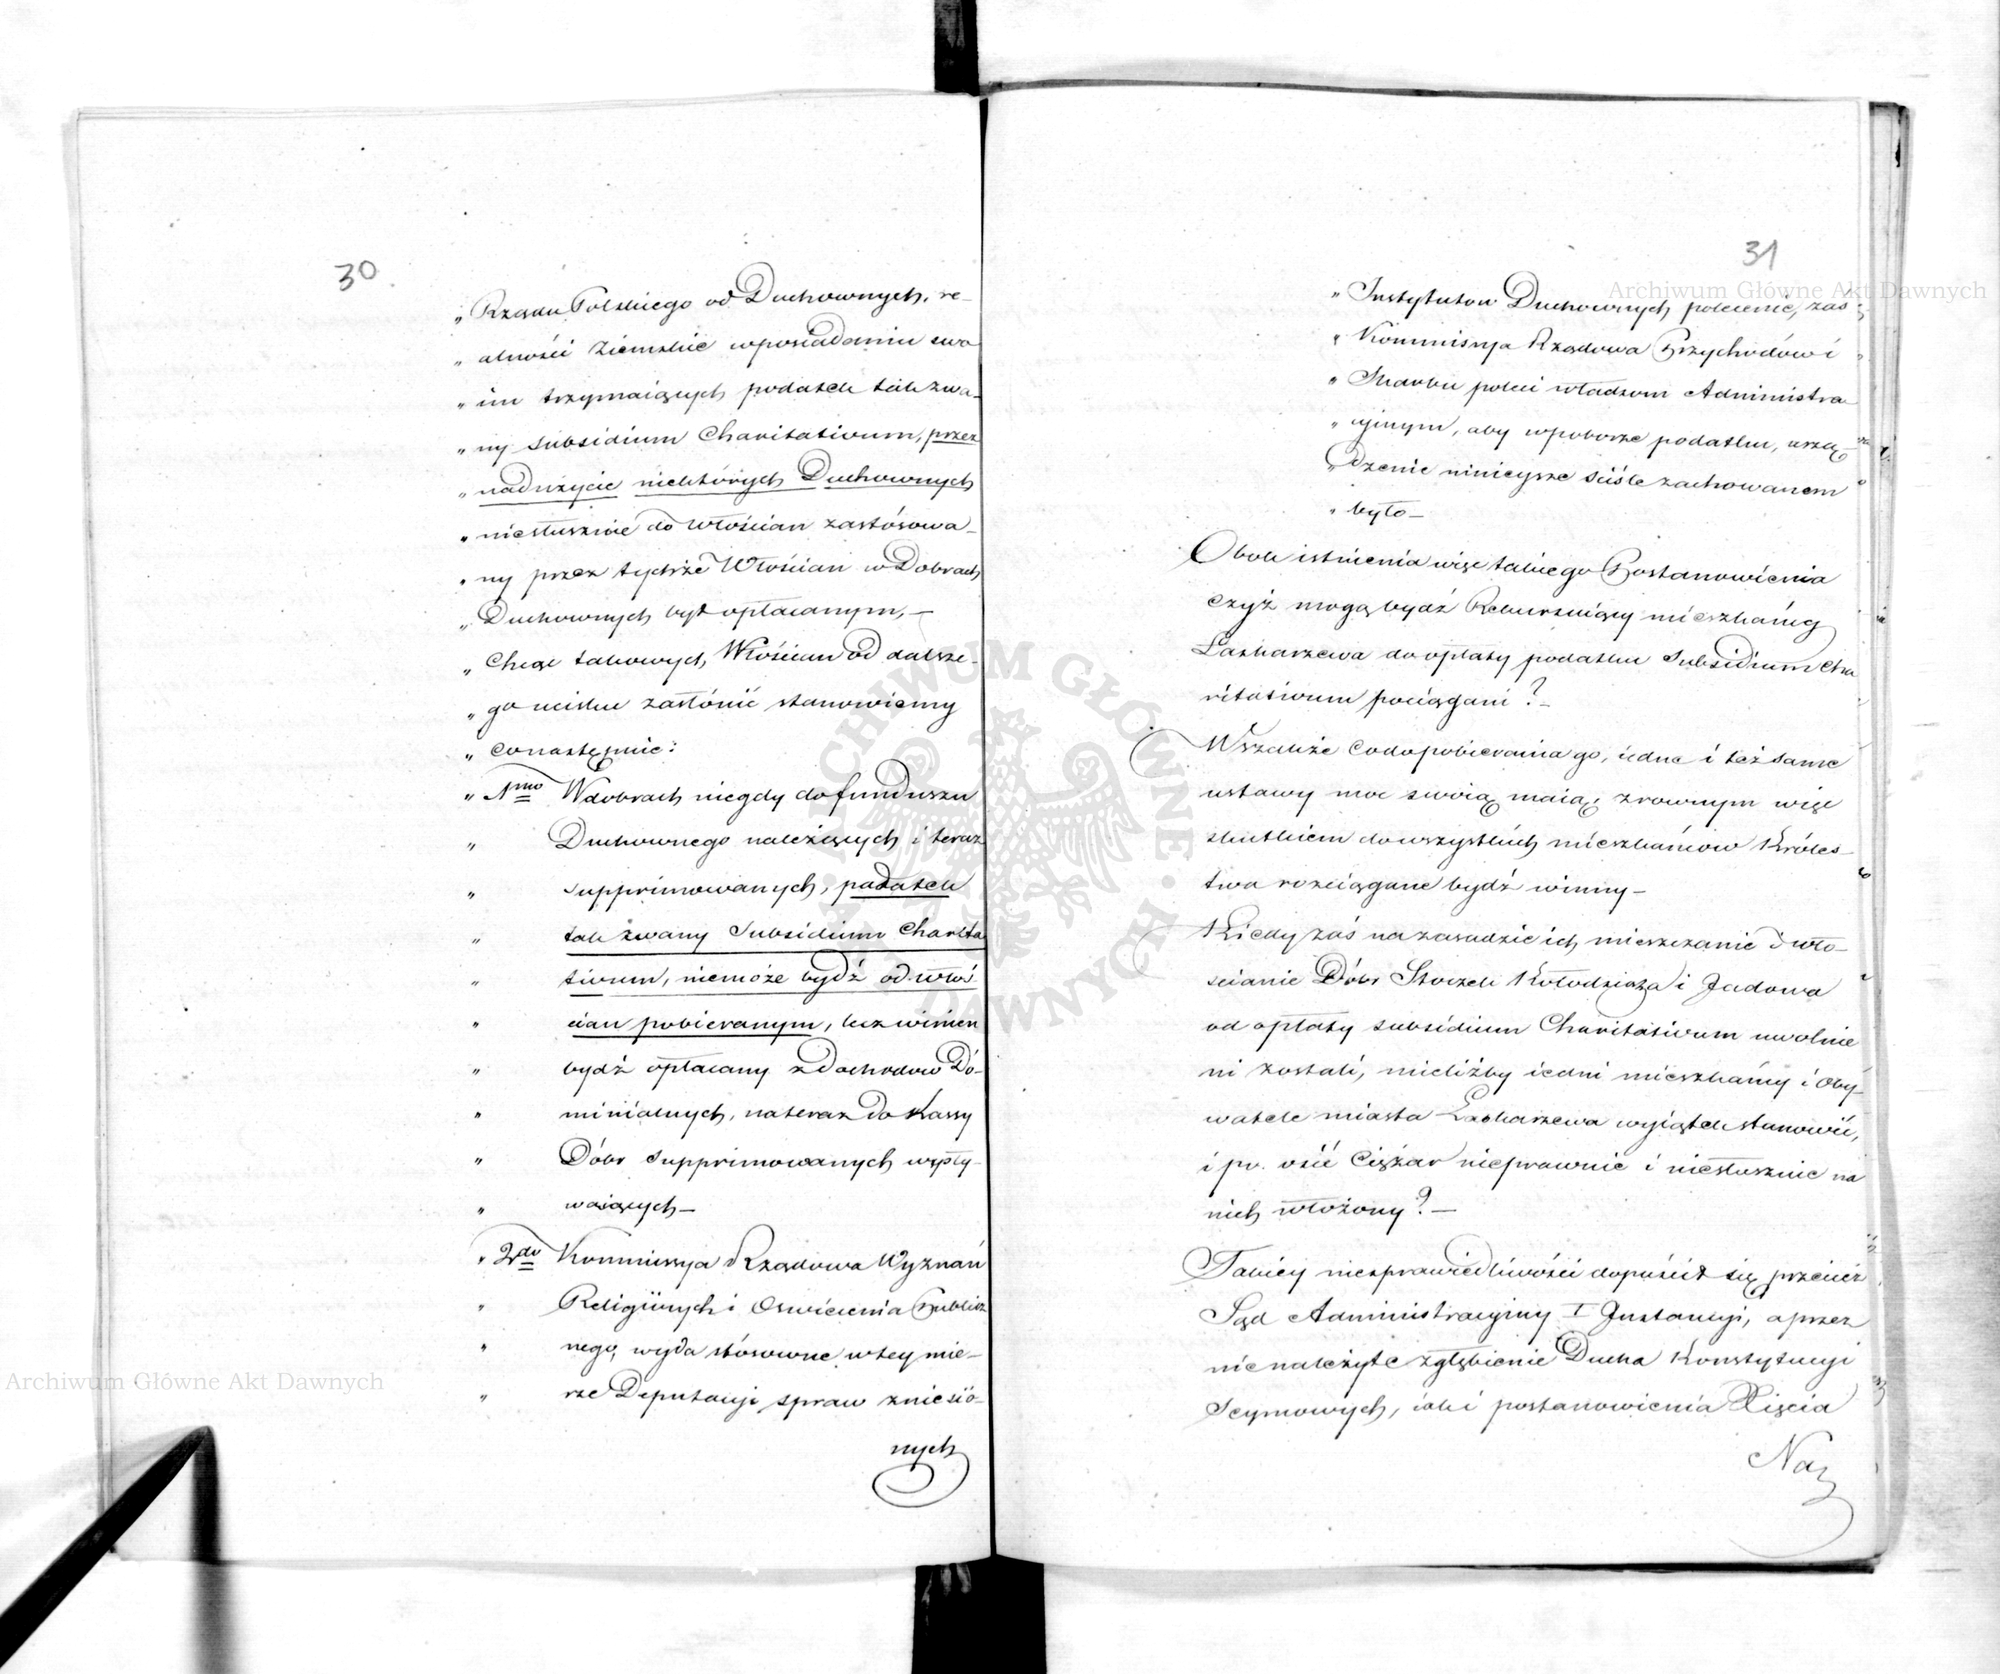 30
„ Rządu Polskiego od Duchownych, re-
„ alności Ziemskie wposiadaniu swo
„ im trzymaiących podatek tak zwa-
„ ny subsidium Charitativum, przez
„ nadużycie niektórych Duchownych
„ niesłusznie do Włościan zastósowa-
„ ny przez tychże Włościan w Dobrach
„ Duchownych był opłacanym, —
„ Chcąc takowych, Włościan od dalsze-
„ go ucisku zasłonić stanowiemy
„ conastępnie:
„ 1mo Wdobrach niegdy do funduszu
„ Duchownego należących i teraz
„ supprimowanych, podatek
„ tak zwany Subsidium Charita
„ tivum, niemoże bydź od włoś
„ cian pobieranym, lecz winien
„ bydź opłacany z Dochodów Do-
„ minialnych, nateraz do Kassy
„ Dóbr Supprimowanych wpły-
„ waiących —
„ 2do Kommissya Rządowa Wyznań
„ Religiinych i Oswiecenia Publicz
„ nego, wyda stósowne w tey mie-
„ rze Deputacyi spraw zniesio-
nych
31
„ Instytutow Duchownych polecenie, zaś
„ Kommissya Rządowa Przychodów i
„ Skarbu poleci władzom Administra-
„ cyinym, aby wpoborze podatku, urzą-
„ dzenie ninieysze ściśle zachowanem
„ było —
Obok istnienia więc takiego Postanowienia
czyż mogą bydź Rekursuiący mieszkańcy
Łaskarzewa do opłaty podatku Subsidium Cha
ritativum pociągani? —
Wszakże co do pobierania go, iedne i też same
ustawy moc swoią maią, z rownym więc
skutkiem do wszystkich mieszkańcow Króles-
twa rozciągane bydź winny —
Kiedy zaś na zasadzie ich mieszczanie i wło-
scianie Dóbr Stoczek Kołodziąża i Jadowa
od opłaty subsidium Charitativum uwolnie
ni zostali, mieliżby iedni mieszkańcy i Oby-
watele miasta Łaskarzewa wyiątek stanowić,
i po. osić Ciężar nieprawnie i niesłusznie na
nich włożony? —
Takiey niesprawiedliwości dopuścił się przecież
Sąd Administracyiny I Instancyi, a przez
nienależyte zgłębienie Ducha Konstytucyi
Seymowych, iak i postanowienia Xięcia
Na
Archiwum Główne Akt Dawnych
Archiwum Główne Akt Dawnych
ARCHIWUM GŁÓWNE AKT DAWNYCH